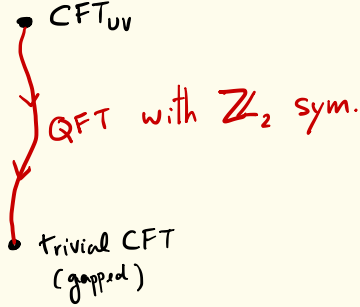 CFT_UV
QFT with ℤ₂ sym.
trivial CFT
(gapped)